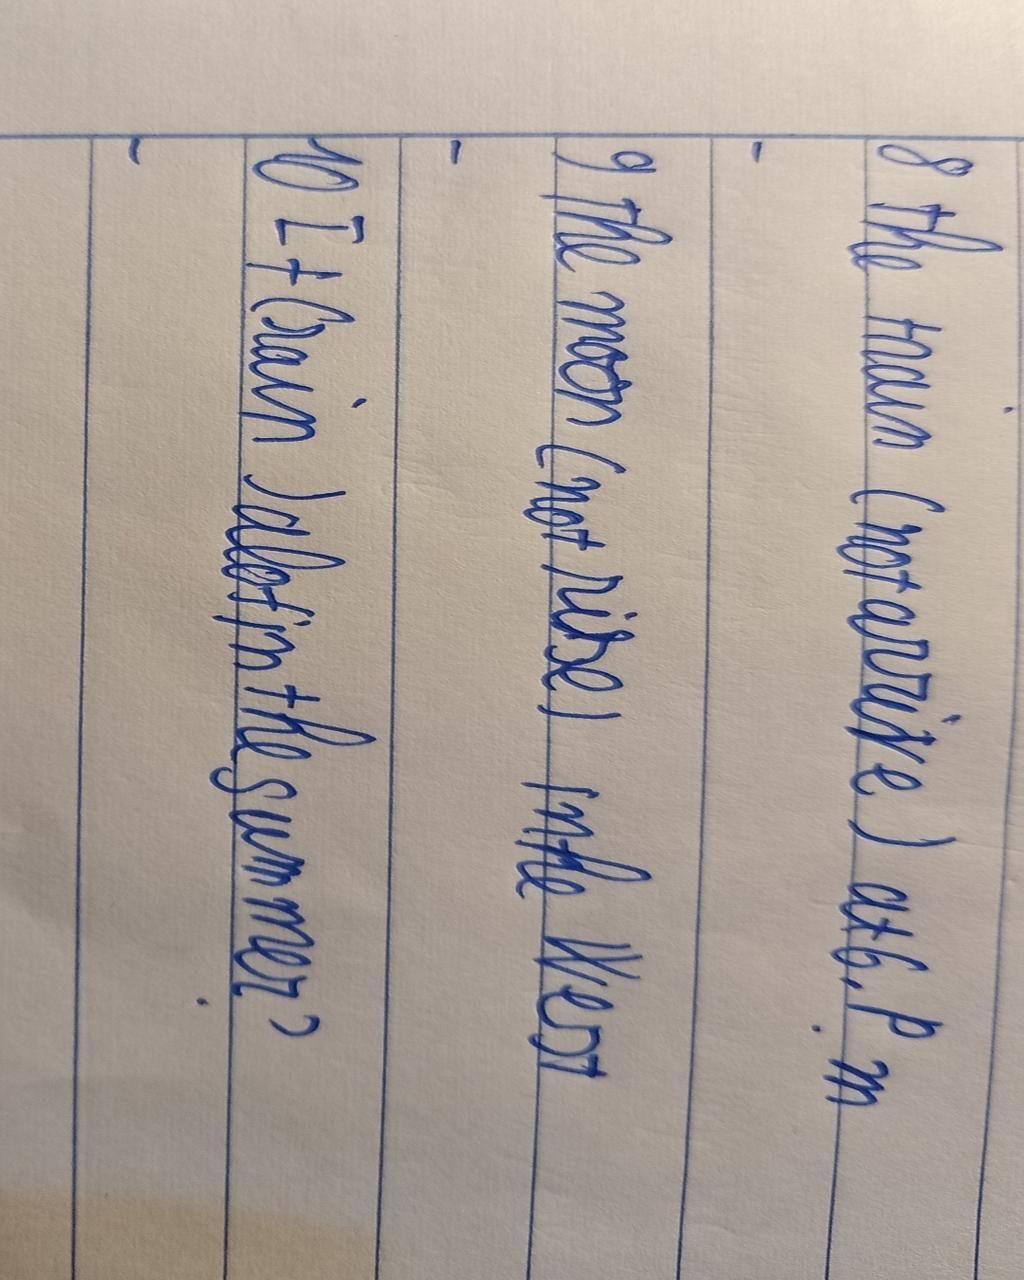 8 the train (not arrive) at 6. p m
-
9 The moon (not rise) in the West
-
10 It (rain) alot in the summer?
-